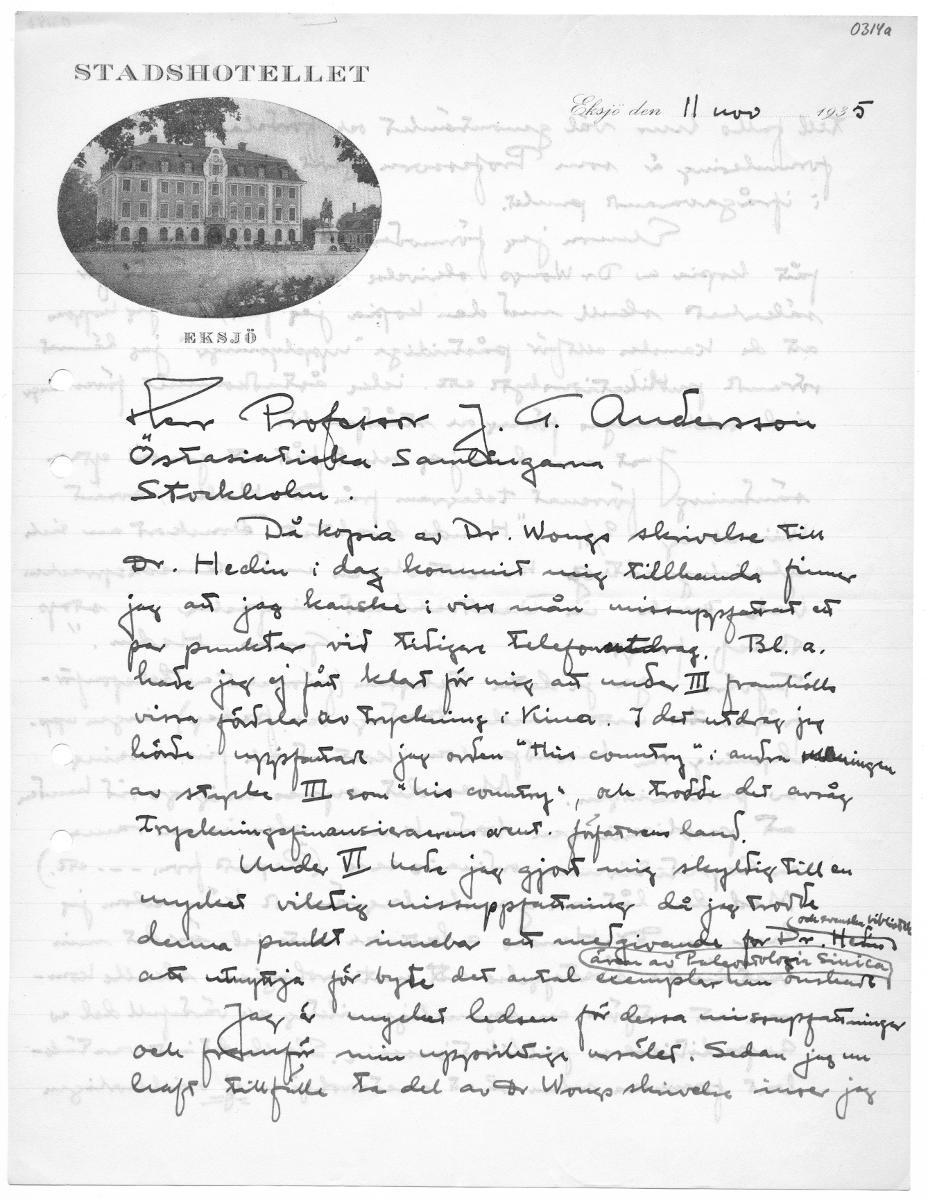 0314a
STADSHOTELLET
Eksjö den 11 nov 1935
EKSJÖ
Herr Professor J. G. Andersson
Östasiatiska Samlingarna
Stockholm.
Då kopia av Dr. Wongs skrivelse till
Dr. Hedin i dag kommit mig tillhanda finner
jag att jag kanske i viss mån missuppfattat ett
par punkter vid tidigare telefonutdrag. Bl. a.
hade jag ej fått klart för mig att under III framhölls
vissa fördelar av tryckning i Kina. I det utdrag jag
hörde uppfattade jag orden "this country" i andra meningen
av stycke III som "his country", och trodde det avsåg
tryckningsfinansierarens event. författarens land.
Under VI hade jag gjort mig skyldig till en
mycket viktig missuppfattning då jag trodde
och svenska bibliotek
denna punkt innebar ett medgivande för Dr. Hedin
även av Palaeontologia Sinica
att utnyttja för byte det antal exemplar han önskade
Jag är mycket ledsen för dessa missuppfattningar
och framför min uppriktiga ursäkt. Sedan jag nu
haft tillfälle ta del av Dr Wongs skrivelse inser jag